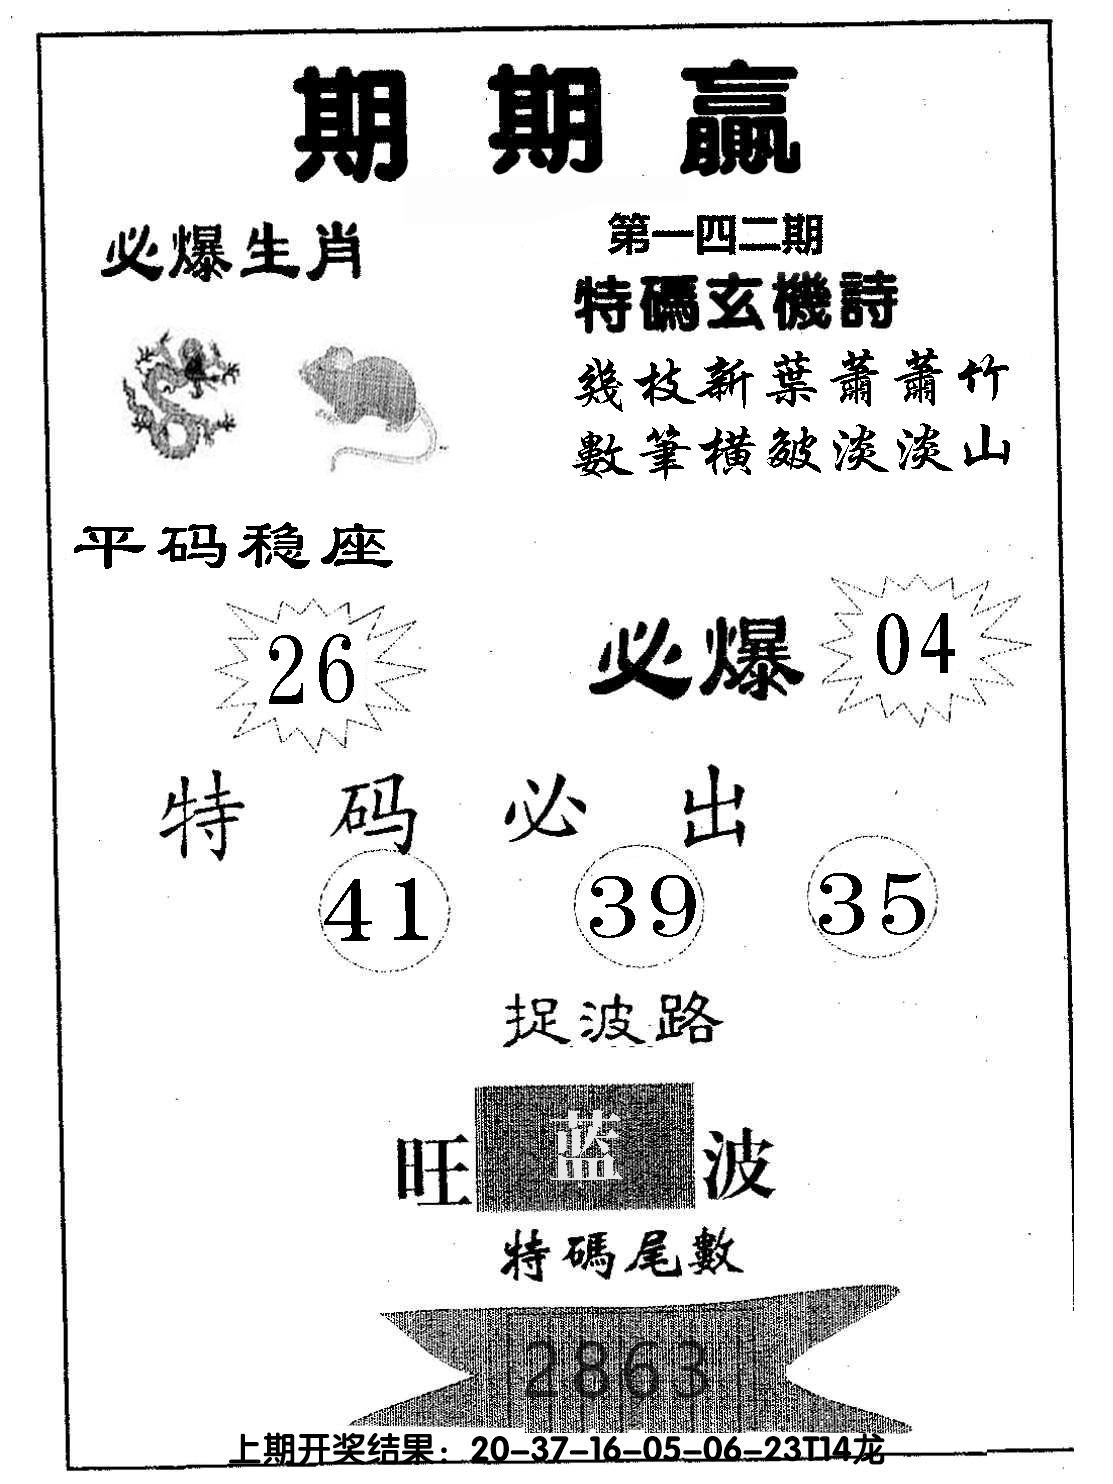 期期贏
必爆生肖
第一四二期
特碼玄機詩
幾枝新葉蕭蕭竹
數筆橫皴淡淡山
平码稳座
26
必爆 04
特码必出
41 39 35
捉波路
旺 蓝 波
特碼尾數
2863
上期开奖结果：20-37-16-05-06-23T14龙